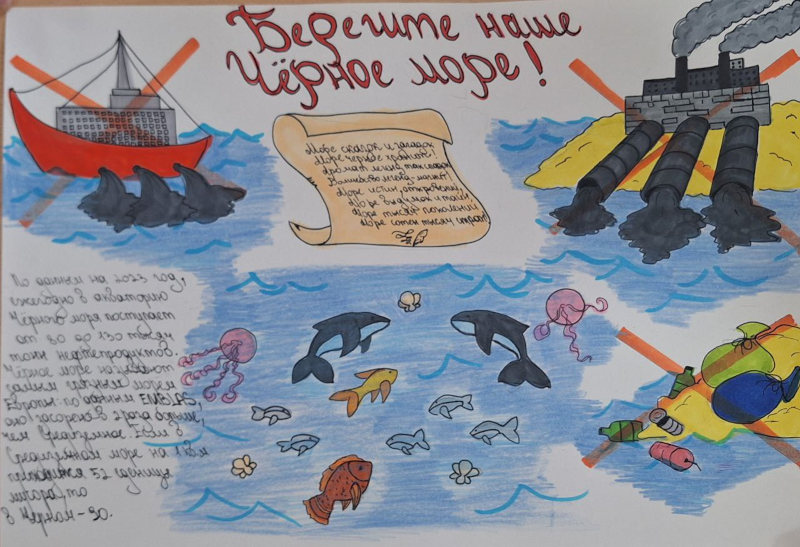 Берегите наше
Чёрное море!
Море сказок и загадок
Море черное хранит
Аромат
Море истин, откровений,
Море выдумок и тайн,
Море тысяч поколений,
Море сотен тысяч стран!
По данным на 2023 год,
ежегодно в акваторию
Чёрного моря поступает
от 30 до 130 тысяч
тонн нефтепродуктов.
Чёрное море называют
самым грязным морем
Европы: по данным EMBLAS,
оно засорено в 2 раза больше,
чем Средиземное. Если в
Средиземном море на 1 км
приходится 52 единицы
мусора, то
в Чёрном - 90.